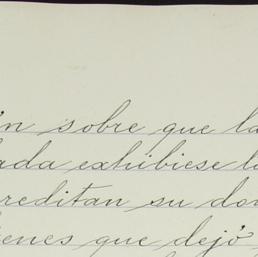 ón sobre que la
ada exhibiese l
reditan su do
ienes que dejó